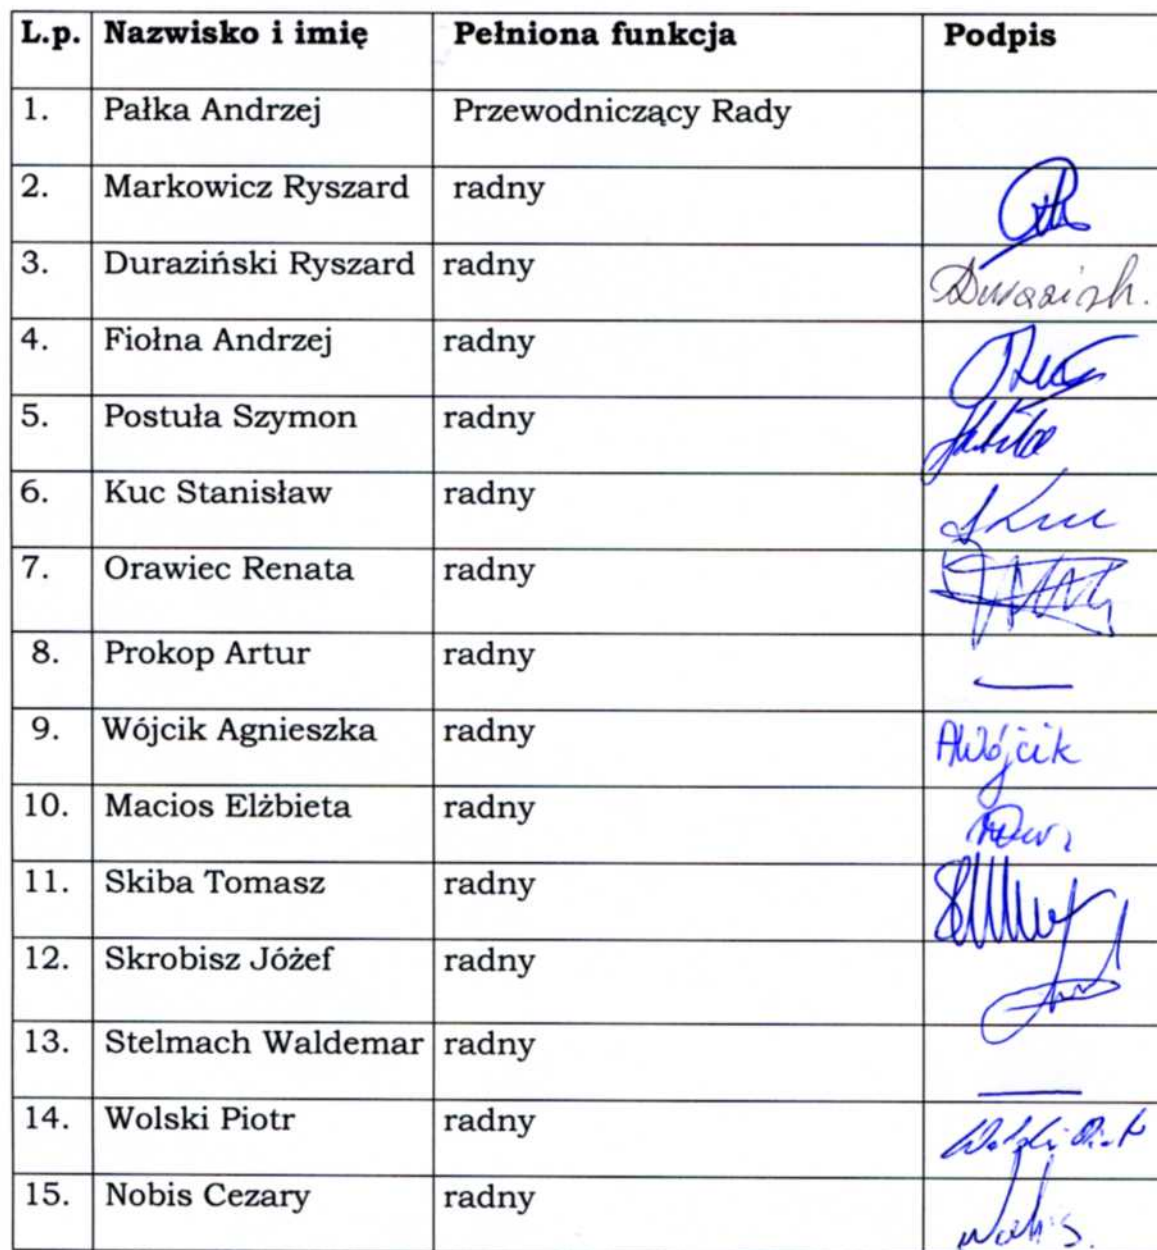 L.p. Nazwisko i imię Pełniona funkcja Podpis
1. Pałka Andrzej Przewodniczący Rady
2. Markowicz Ryszard radny
3. Duraziński Ryszard radny
4. Fiołna Andrzej radny
5. Postuła Szymon radny
6. Kuc Stanisław radny SKuc
7. Orawiec Renata radny
8. Prokop Artur radny —
9. Wójcik Agnieszka radny AWójcik
10. Macios Elżbieta radny
11. Skiba Tomasz radny
12. Skrobisz Józef radny
13. Stelmach Waldemar radny —
14. Wolski Piotr radny Wolski Piotr
15. Nobis Cezary radny Nobis.